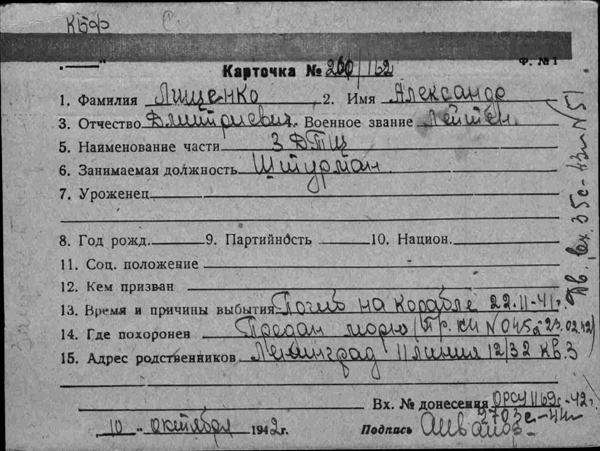 КБФ С.
„ “ Ф. №1
Карточка № 260/162
1. Фамилия Лищенко 2. Имя Александр
3. Отчество Дмитриевич Военное звание Лейтен.
5. Наименование части 3 ДТЩ
6. Занимаемая должность Штурман
7. Уроженец
8. Год рожд. 9. Партийность 10. Национ.
11. Соц. положение
12. Кем призван
13. Время и причины выбытия Погиб на корабле 22.11-41г.
14. Где похоронен Предан морю (Пр. КИ N 045 23.02.42)
15. Адрес родственников Ленинград 11 линия 12/32 кв. 3
Вх. № донесения ОРСУ 1169с-42г.
2703с-44г
10 — октября 1942г. Подпись
вх. 35с-43г N 51.